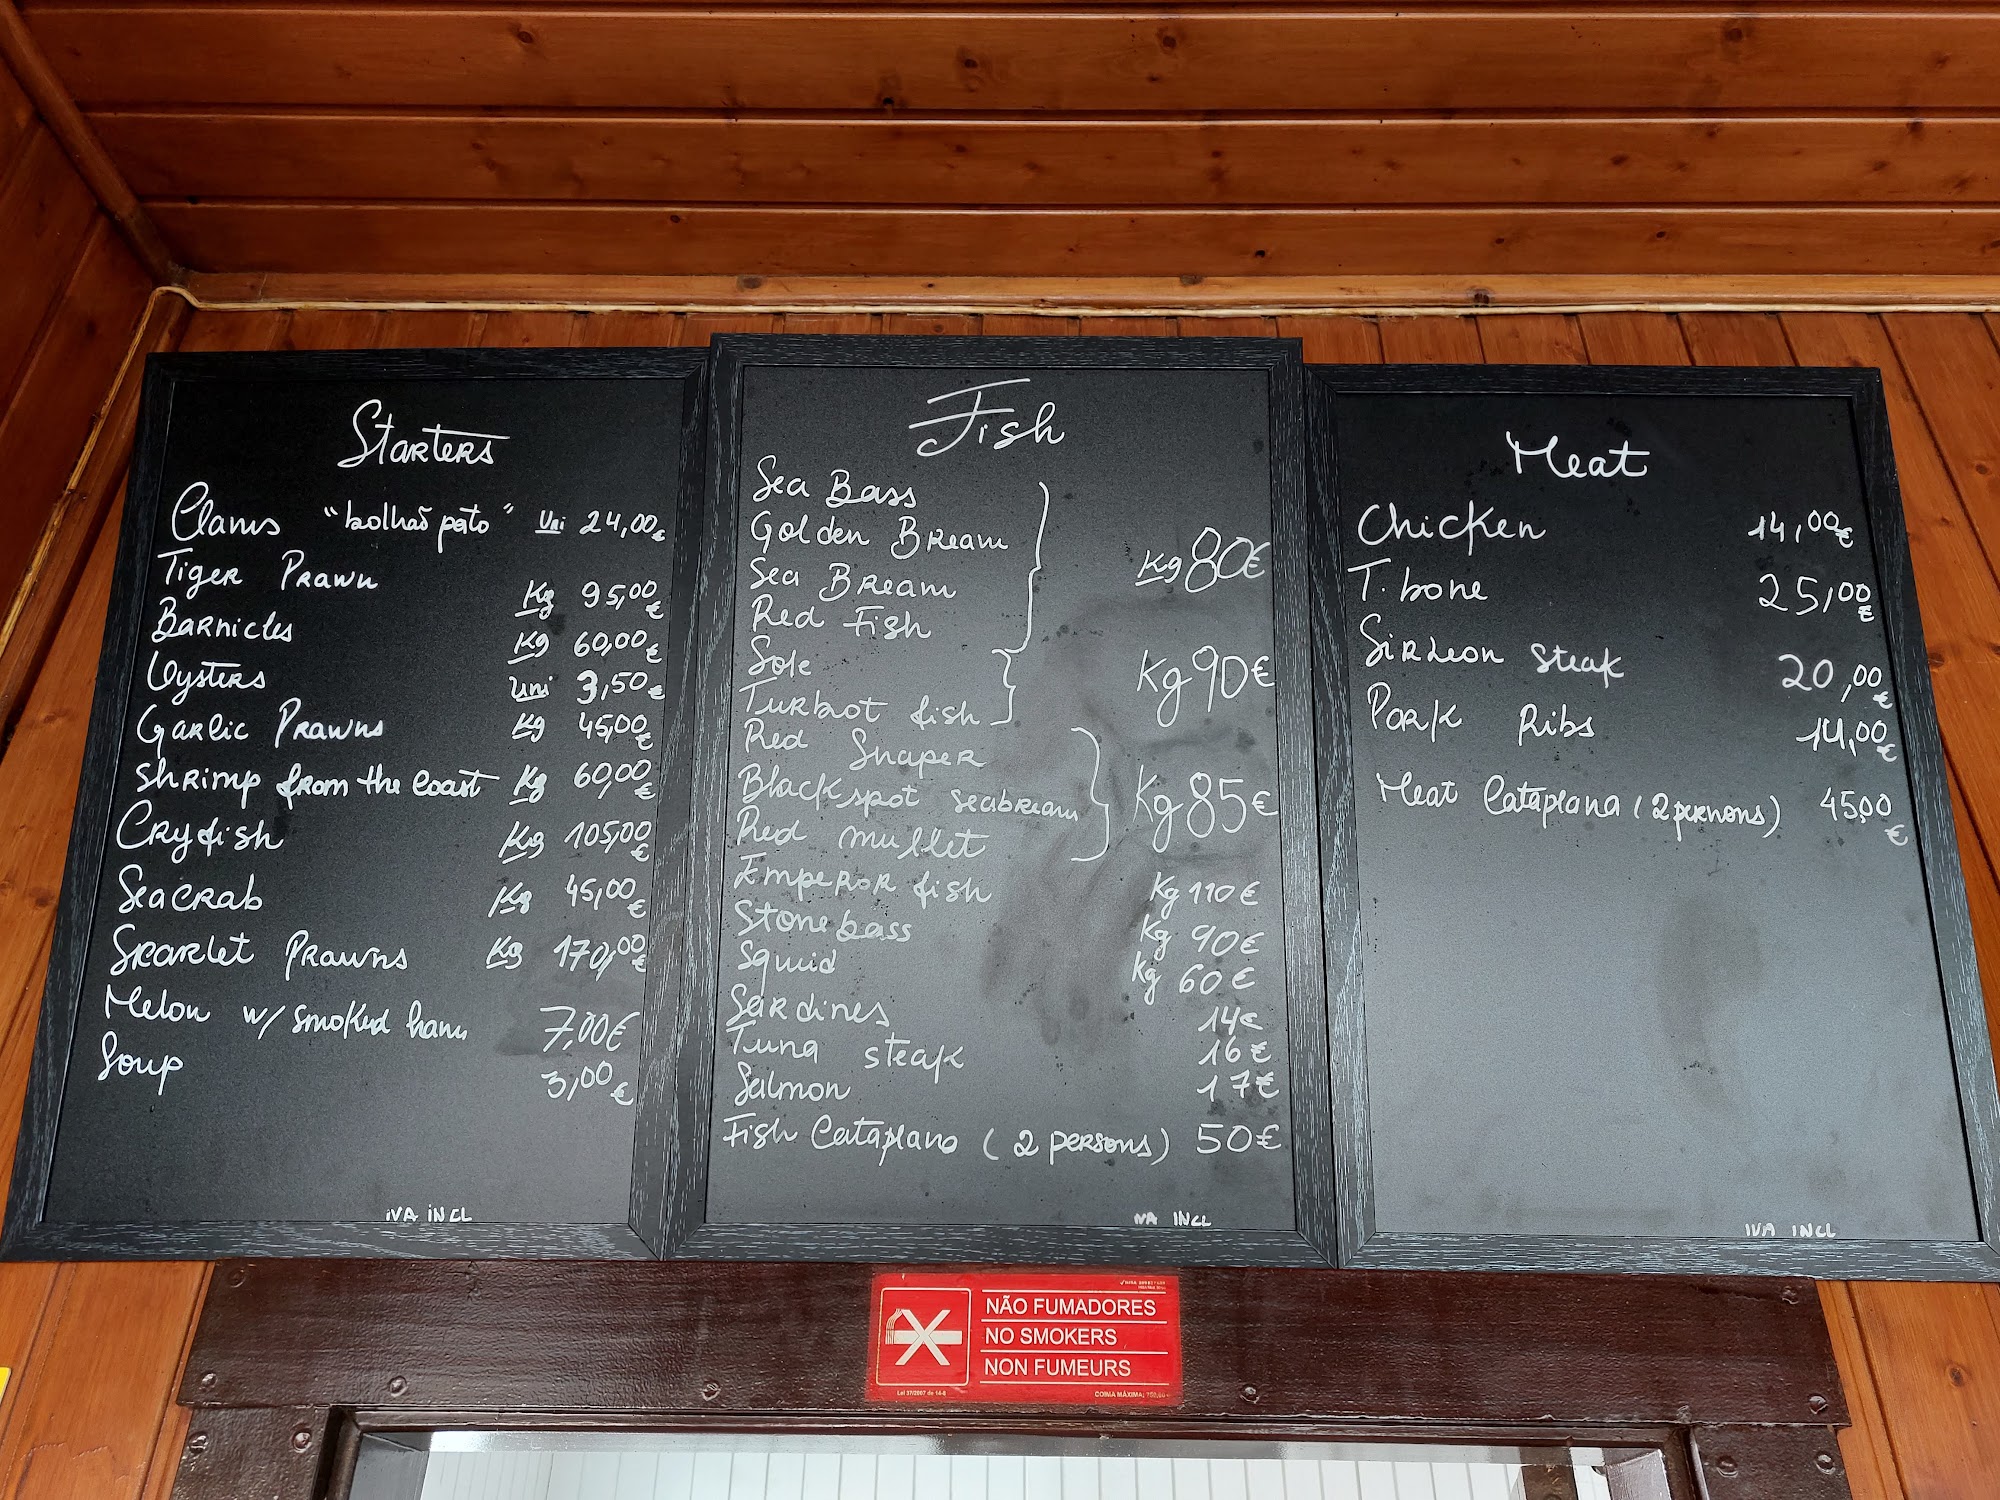 Starters
Clams "bolhão pato" Uni 24,00€
Tiger Prawn Kg 95,00€
Barnicles Kg 60,00€
Oysters Uni 3,50€
Garlic Prawns Kg 45,00€
Shrimp from the Coast Kg 60,00€
Cryfish Kg 105,00€
Seacrab Kg 45,00€
Skarlet Prawns Kg 170,00€
Melon w/ smoked ham 7,00€
Soup 3,00€
IVA INCL
Fish
Sea Bass
Golden Bream
Sea Bream
Red Fish
Kg 80€
Sole
Turbot fish
Kg 90€
Red Snaper
Blackspot seabream
Red mullet
Kg 85€
Emperor fish Kg 110€
Stonebass Kg 90€
Squid Kg 60€
Sardines 14€
Tuna steak 16€
Salmon 17€
Fish Cataplana (2 persons) 50€
IVA INCL
Meat
Chicken 14,00€
T.bone 25,00€
Sirleon steak 20,00€
Pork Ribs 14,00€
Meat Cataplana (2 persons) 45,00€
IVA INCL
NÃO FUMADORES
NO SMOKERS
NON FUMEURS
Lei 37/2007 de 14-8
COIMA MÁXIMA: 750,00